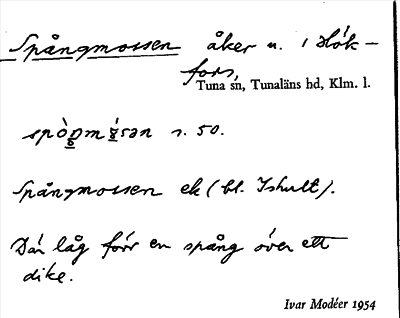 Spångmossen åker n. i Hök-
fors,
Tuna sn, Tunaläns hd, Klm. l.
spòŋmósən s. 50.
Spångmossen ek (bl. Ishult).
Där låg förr en spång över ett
dike.
Ivar Modéer 1954